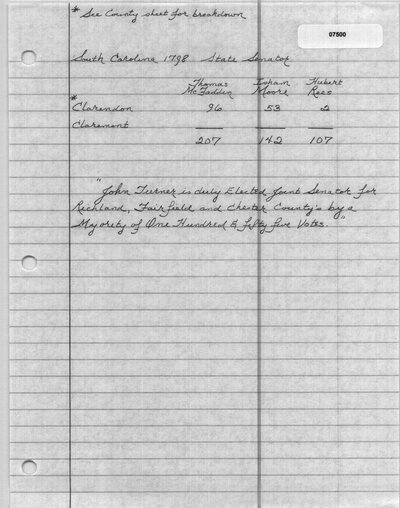 * See County sheet for breakdown
07500
South Carolina 1798 State Senator
Thomas McFaddin Isham Moore Hubert Rees
* Clarendon 96 53 2
Claremont
207 142 107
"John Turner is duly Elected Joint Senator for
Richland, Fairfield and Chester County's by a
Majority of One Hundred & fifty five Votes."